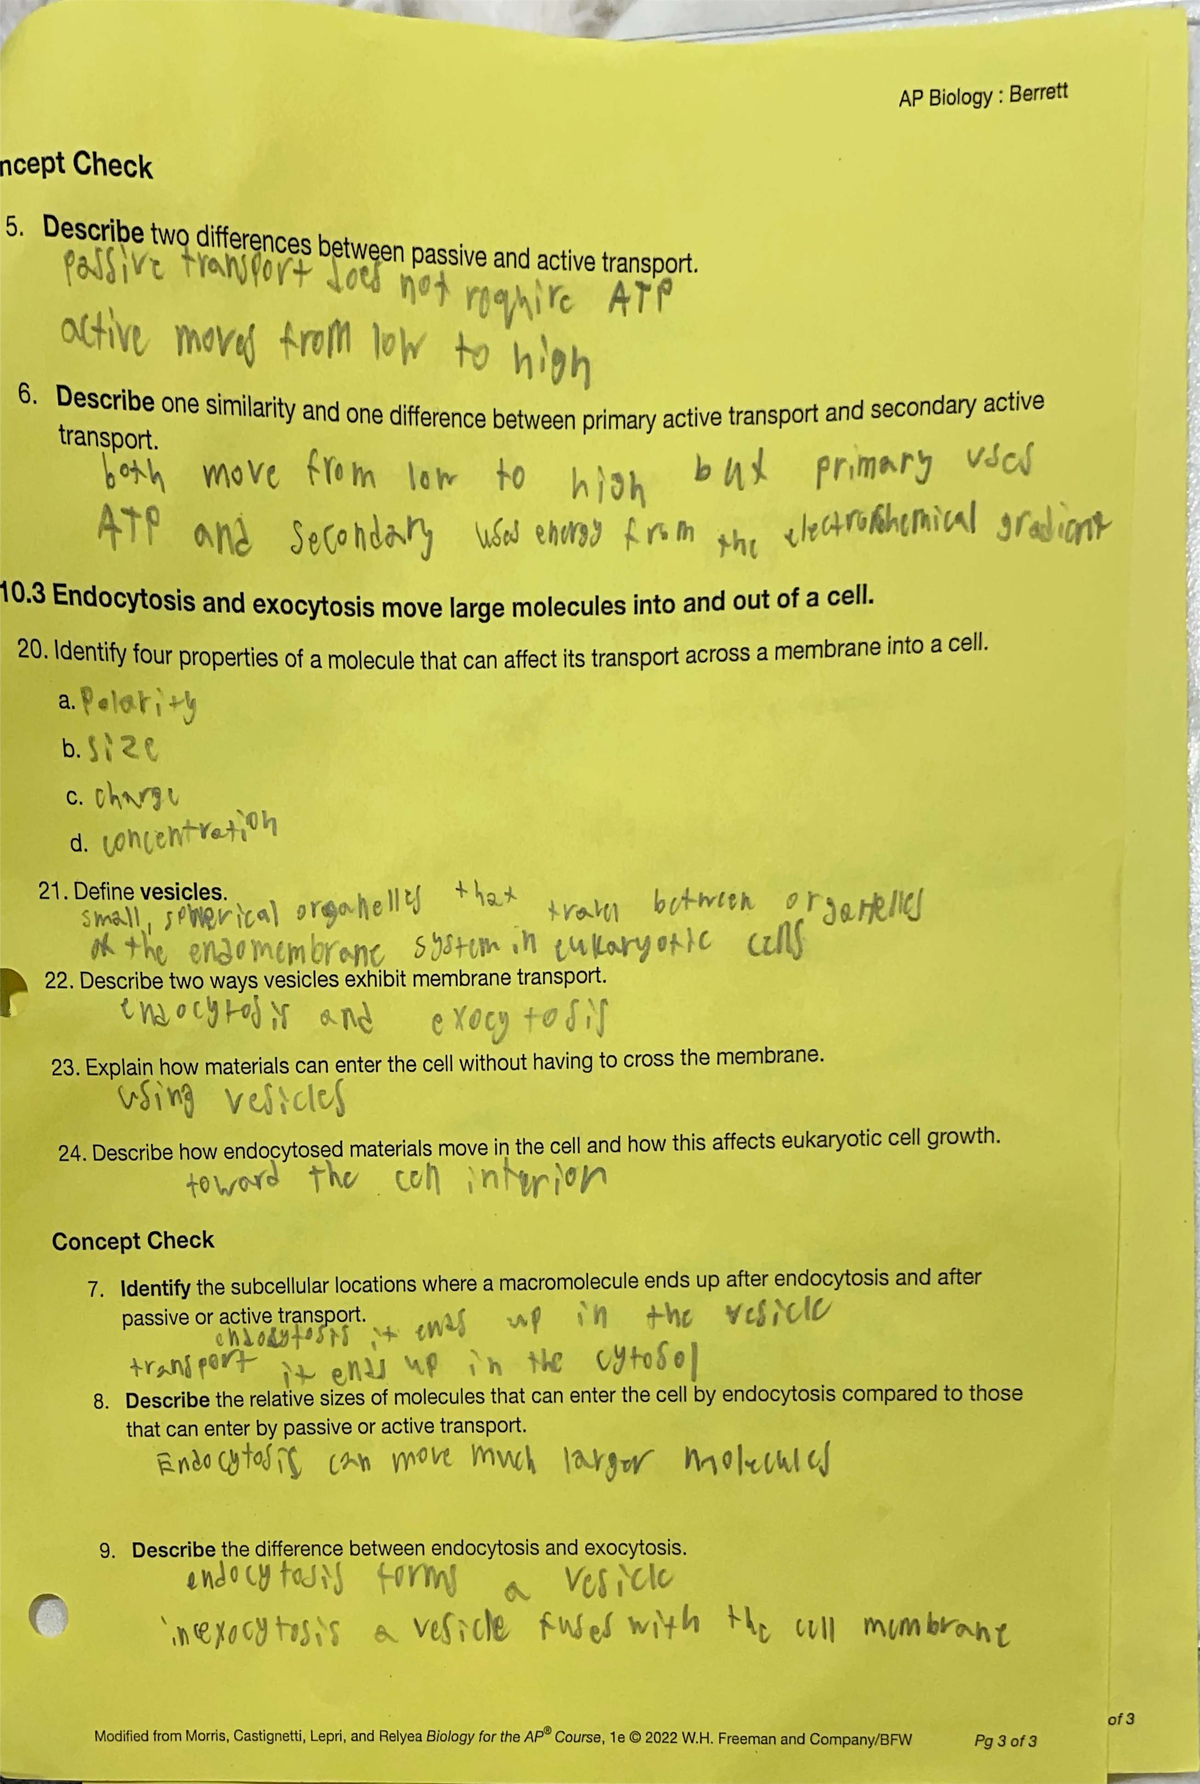 AP Biology : Berrett
ncept Check
5. Describe two differences between passive and active transport.
passive transport does not require ATP
active moves from low to high
6. Describe one similarity and one difference between primary active transport and secondary active
transport.
both move from low to high but primary uses
ATP and secondary uses energy from the electrochemical gradient
10.3 Endocytosis and exocytosis move large molecules into and out of a cell.
20. Identify four properties of a molecule that can affect its transport across a membrane into a cell.
a. Polarity
b. size
c. charge
d. concentration
21. Define vesicles.
small, spherical organelles that travel between organelles
of the endomembrane system in eukaryotic cells
22. Describe two ways vesicles exhibit membrane transport.
endocytosis and exocytosis
23. Explain how materials can enter the cell without having to cross the membrane.
using vesicles
24. Describe how endocytosed materials move in the cell and how this affects eukaryotic cell growth.
toward the cell interion
Concept Check
7. Identify the subcellular locations where a macromolecule ends up after endocytosis and after
passive or active transport.
endocytosis it ends up in the vesicle
transport it ends up in the cytosol
8. Describe the relative sizes of molecules that can enter the cell by endocytosis compared to those
that can enter by passive or active transport.
Endocytosis can move much larger molecules
9. Describe the difference between endocytosis and exocytosis.
endocytosis forms a vesicle
in exocytosis a vesicle fuses with the cell membrane
Modified from Morris, Castignetti, Lepri, and Relyea Biology for the AP® Course, 1e © 2022 W.H. Freeman and Company/BFW
Pg 3 of 3
of 3